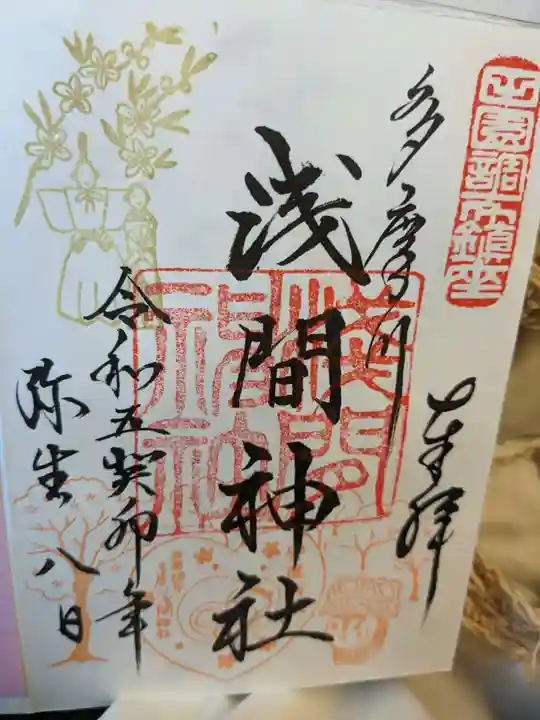 田園調布鎮座
奉拝
多摩川
浅間神社
浅間神社
令和五癸卯年
弥生八日